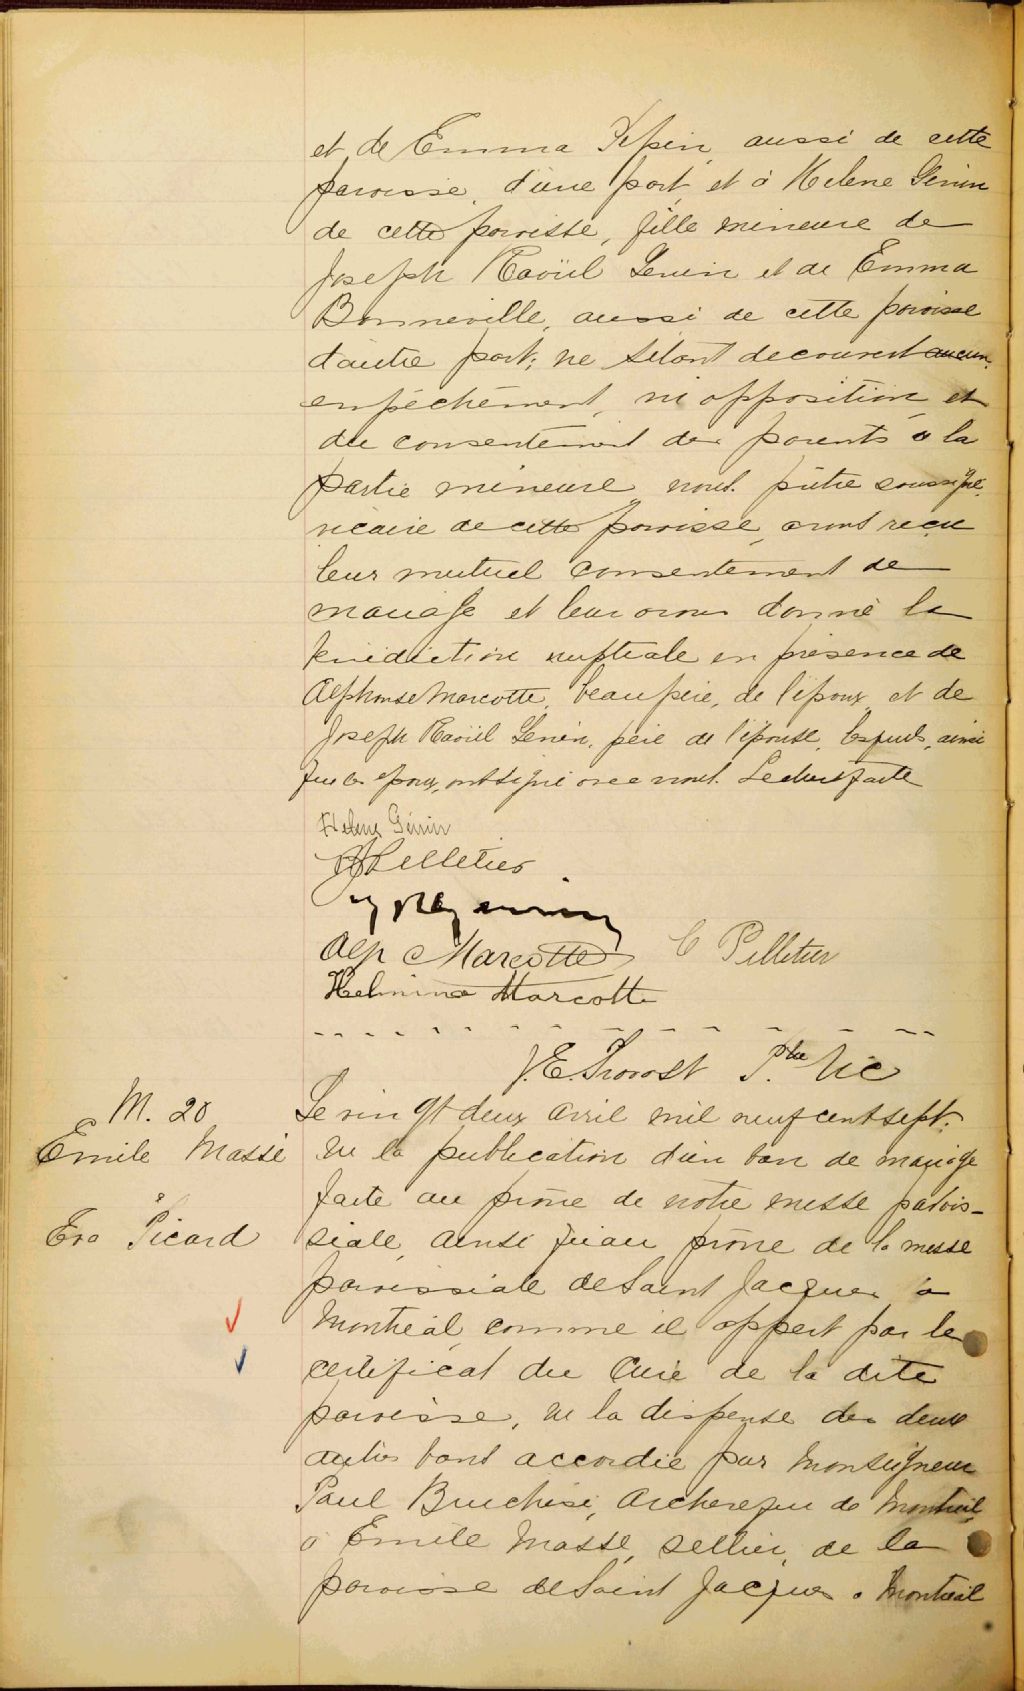 et de Emma Pepin, aussi de cette
paroisse, d'une part, et à Helene Genin
de cette paroisse, fille mineure de
Joseph Raoül Genin et de Emma
Bonneville, aussi de cette paroisse
d'autre part; ne s'étant découvert aucun
empêchement, ni opposition, et
du consentement des parents à la
partie mineure, nous prêtre soussigné,
vicaire de cette paroisse, avons reçu
leur mutuel consentement de
mariage et leur avons donné la
bénédiction nuptiale en présence de
Alphonse Marcotte, beau père, de l'époux, et de
Joseph Raoül Genin, père de l'épouse, lesquels, ainsi
que les époux, ont signé avec nous. Lecture faite
Helene Génin
Pelletier
Alp Marcotte C Pelletier
Helmina Marcotte
J.E. Provost Ptre Vic
M. 20
Emile Massé
Eva Picard
Le vingt deux avril mil neuf cent sept.
vu la publication d'un ban de mariage
faite au prône de notre messe parois-
siale, ainsi qu'au prône de la messe
paroissiale de Saint Jacques à
Montréal, comme il appert par le
certificat du Curé de la dite
paroisse, vu la dispense des deux
autres bans accordée par Monseigneur
Paul Bruchesi, Archevêque de Montréal,
à Emile Massé, sellier, de la
paroisse de Saint Jacques à Montréal